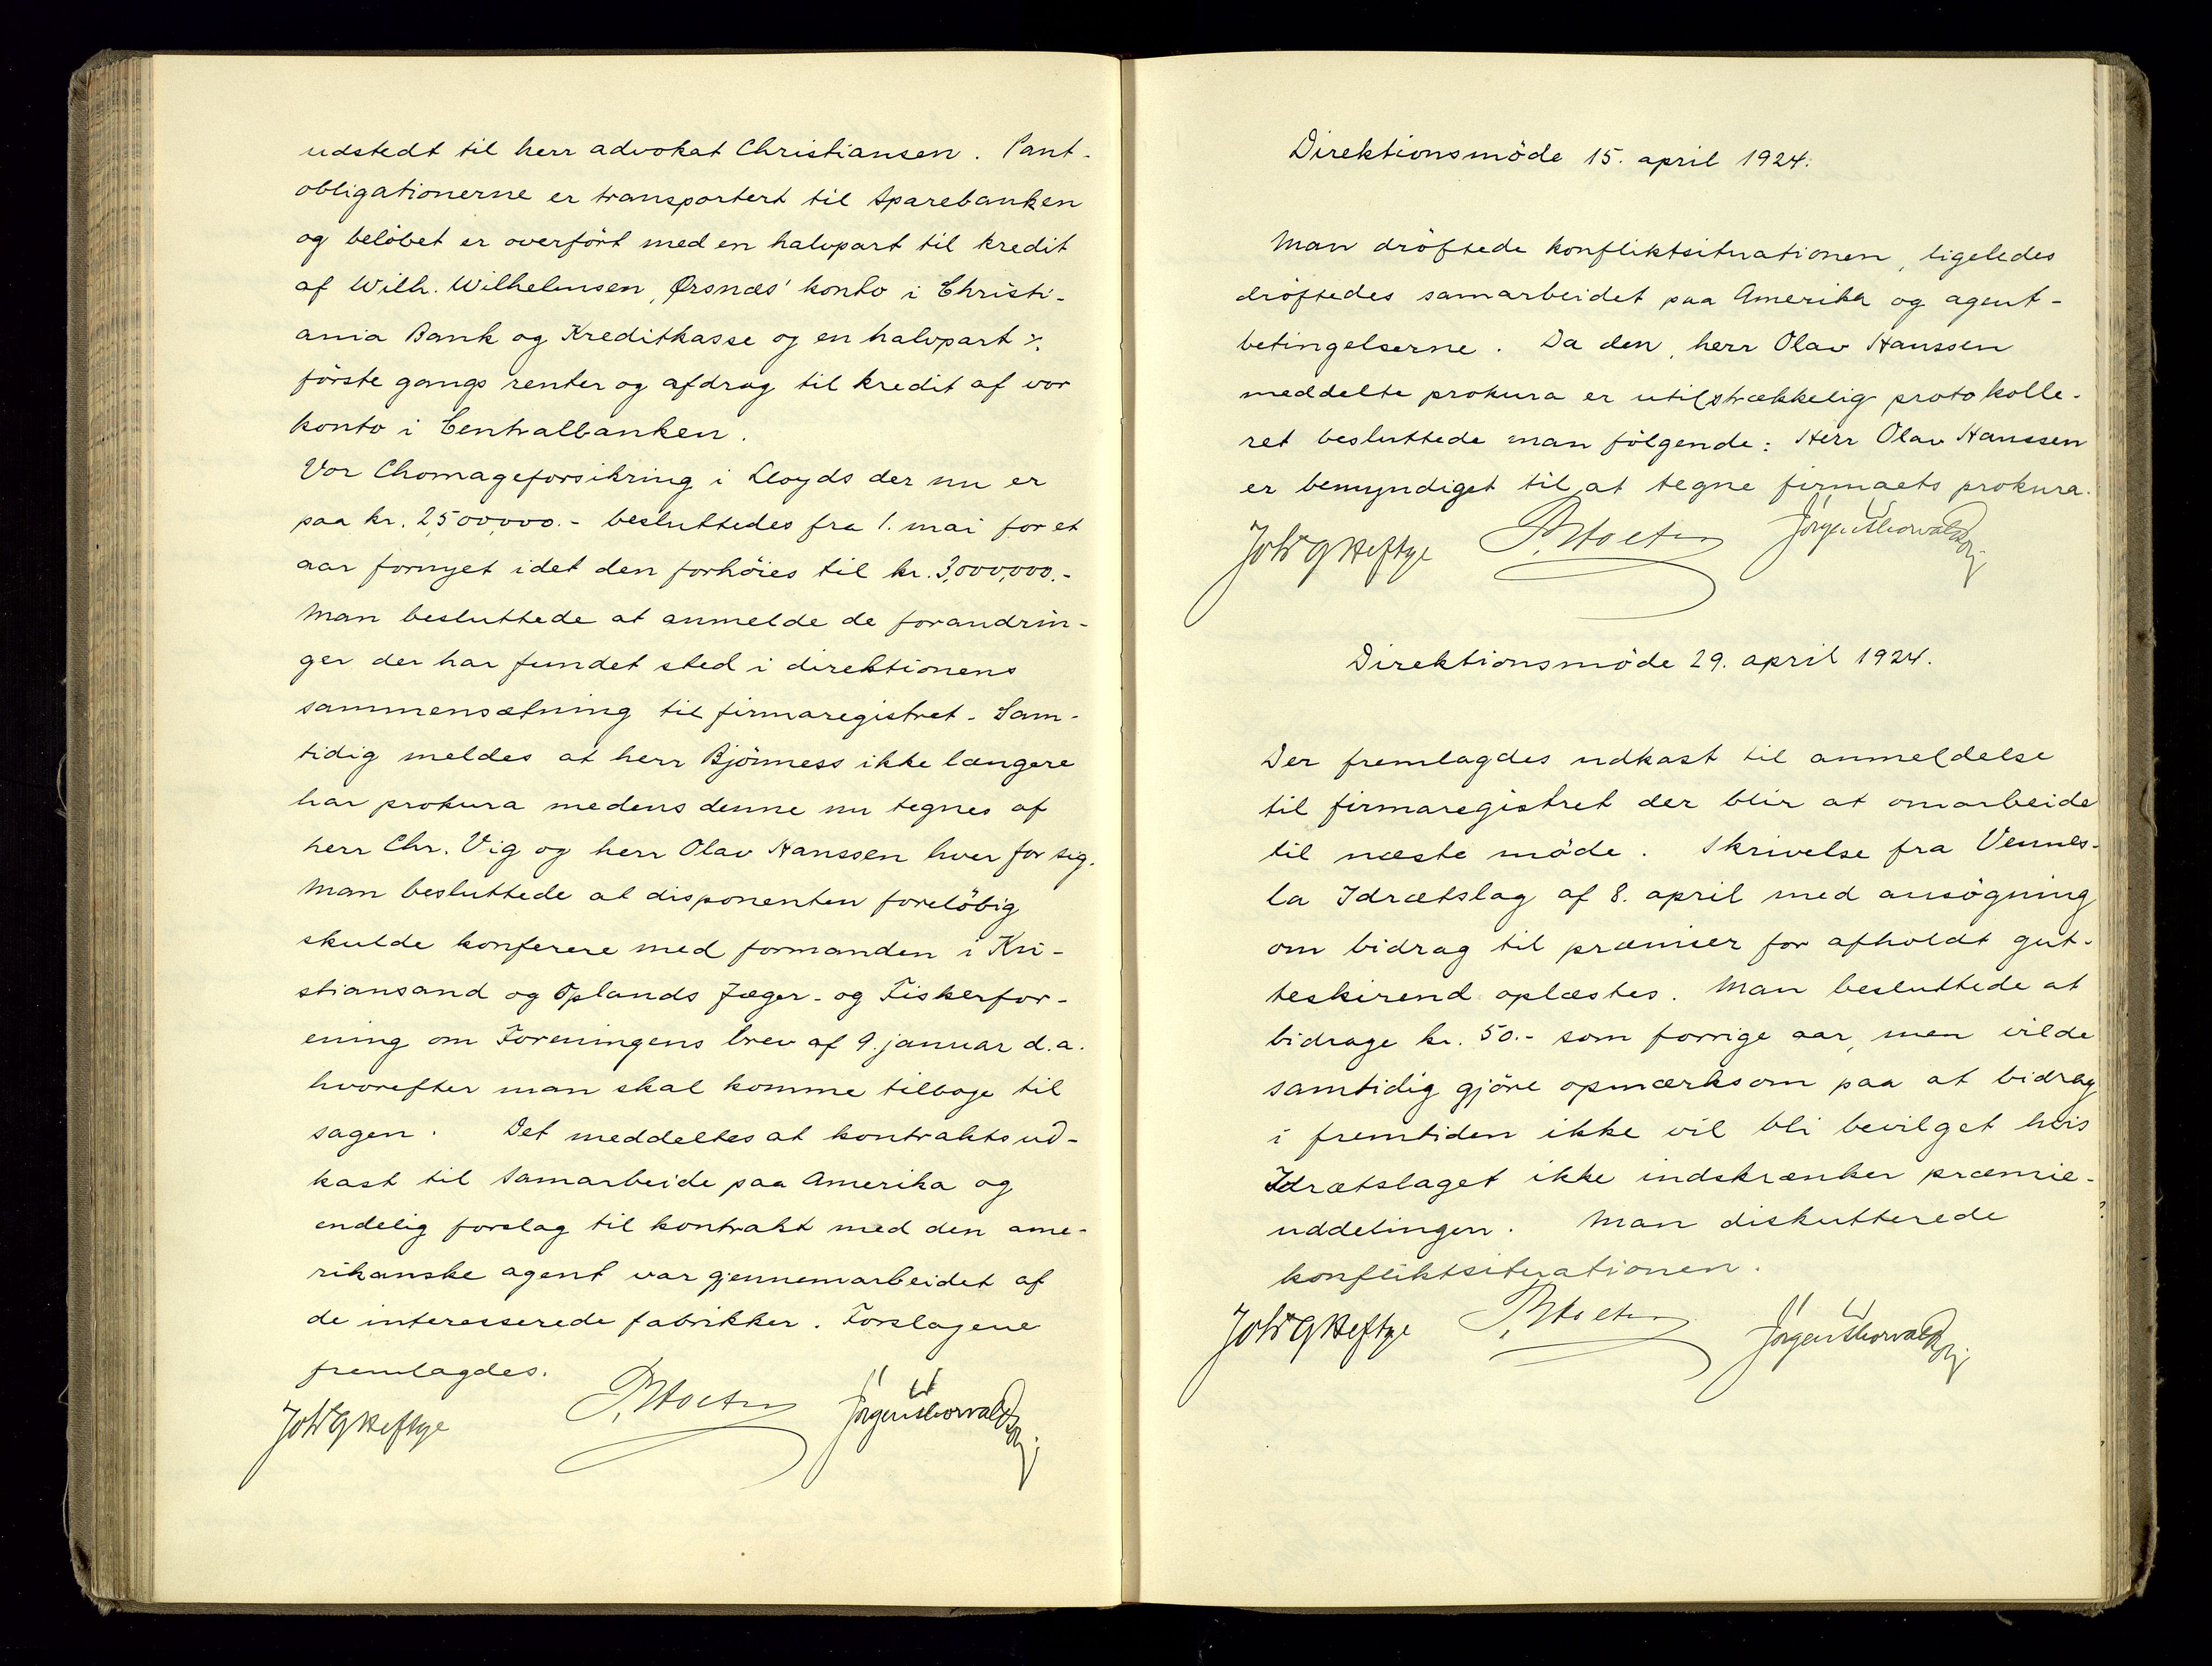 udstedt til herr advokat Christiansen. Pant-
obligationerne er transportert til Sparebanken
og belöbet er overfört med en halvpart til kredit
af Wilh. Wilhelmsen, Ørsnæs' konto i Christi-
ania Bank og Kreditkasse og en halvpart ⁒
förste gangs renter og afdrag til kredit af vor
konto i Centralbanken.
Vor Chomageforsikring i Lloyds der nu er
paa kr. 2,500,000.- besluttedes fra 1. mai for et
aar fornyet idet den forhöies til kr. 3,000,000.-
Man besluttede at anmelde de forandrin-
ger der har fundet sted i direktionens
sammensætning til firmaregistret. Sam-
tidig meldes at herr Bjönness ikke længere
har prokura medens denne nu tegnes af
herr Chr. Vig og herr Olav Hanssen hver for sig.
Man besluttede at disponenten foreløbig
skulde konferere med formanden i Kri-
stiansand og Oplands Jæger- og Fiskerfor-
ening om Foreningens brev af 9. januar d.a.
hvorefter man skal komme tilbage til
sagen. Det meddeltes at kontraktsud-
kast til Samarbeide paa Amerika og
endelig forslag til kontrakt med den ame-
rikanske agent var gjennemarbeidet af
de interesserede fabrikker. Forslagene
fremlagdes.
Joh G Heftye Jörgen Thorvald
Direktionsmöde 15. april 1924.
Man dröftede konfliktsituationen, ligeledes
dröftedes samarbeidet paa Amerika og agent-
betingelserne. Da den, herr Olav Hanssen
meddelte prokura er utilstrækkelig protokolle-
ret besluttede man fölgende: Herr Olav Hanssen
er bemyndiget til at tegne firmaets prokura.
Joh G Heftye Jörgen Thorvald
Direktionsmöde 29. april 1924.
Der fremlagdes udkast til anmeldelse
til firmaregistret der blir at omarbeide
til næste möde. Skrivelse fra Vennes-
la Idrætslag af 8. april med ansögning
om bidrag til præmier for afholdt gut-
teskirend oplæstes. Man besluttede at
bidrage kr. 50.- som forrige aar, men vilde
samtidig gjöre opmærksom paa at bidrag
i fremtiden ikke vil bli bevilget hvis
Idrætslaget ikke indskrænker præmie-
uddelingen. Man diskutterede
konfliktsituationen.
Joh G Heftye Jörgen Thorvald